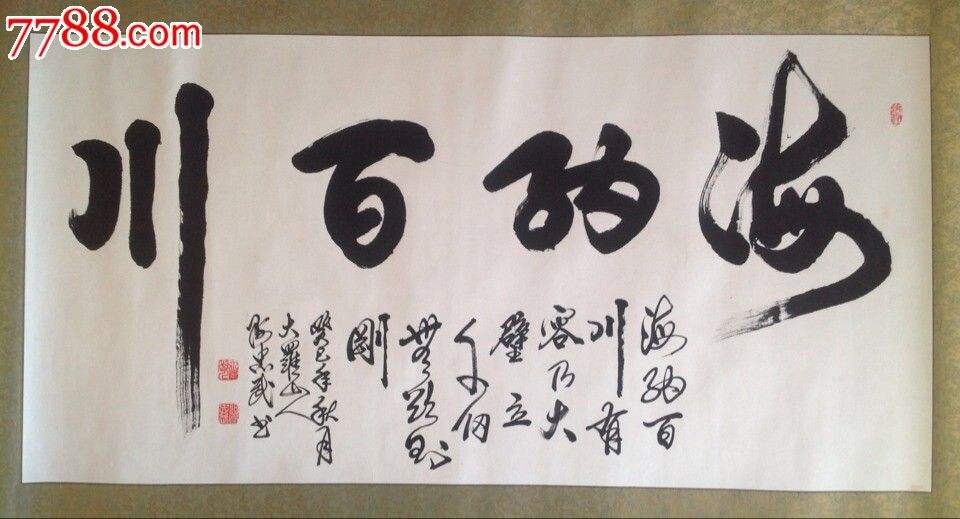 7788.com
海纳百川
海纳百
川有
容乃大
壁立
千仞
無欲則
剛
癸巳年秋月
大羅山人
忠武书